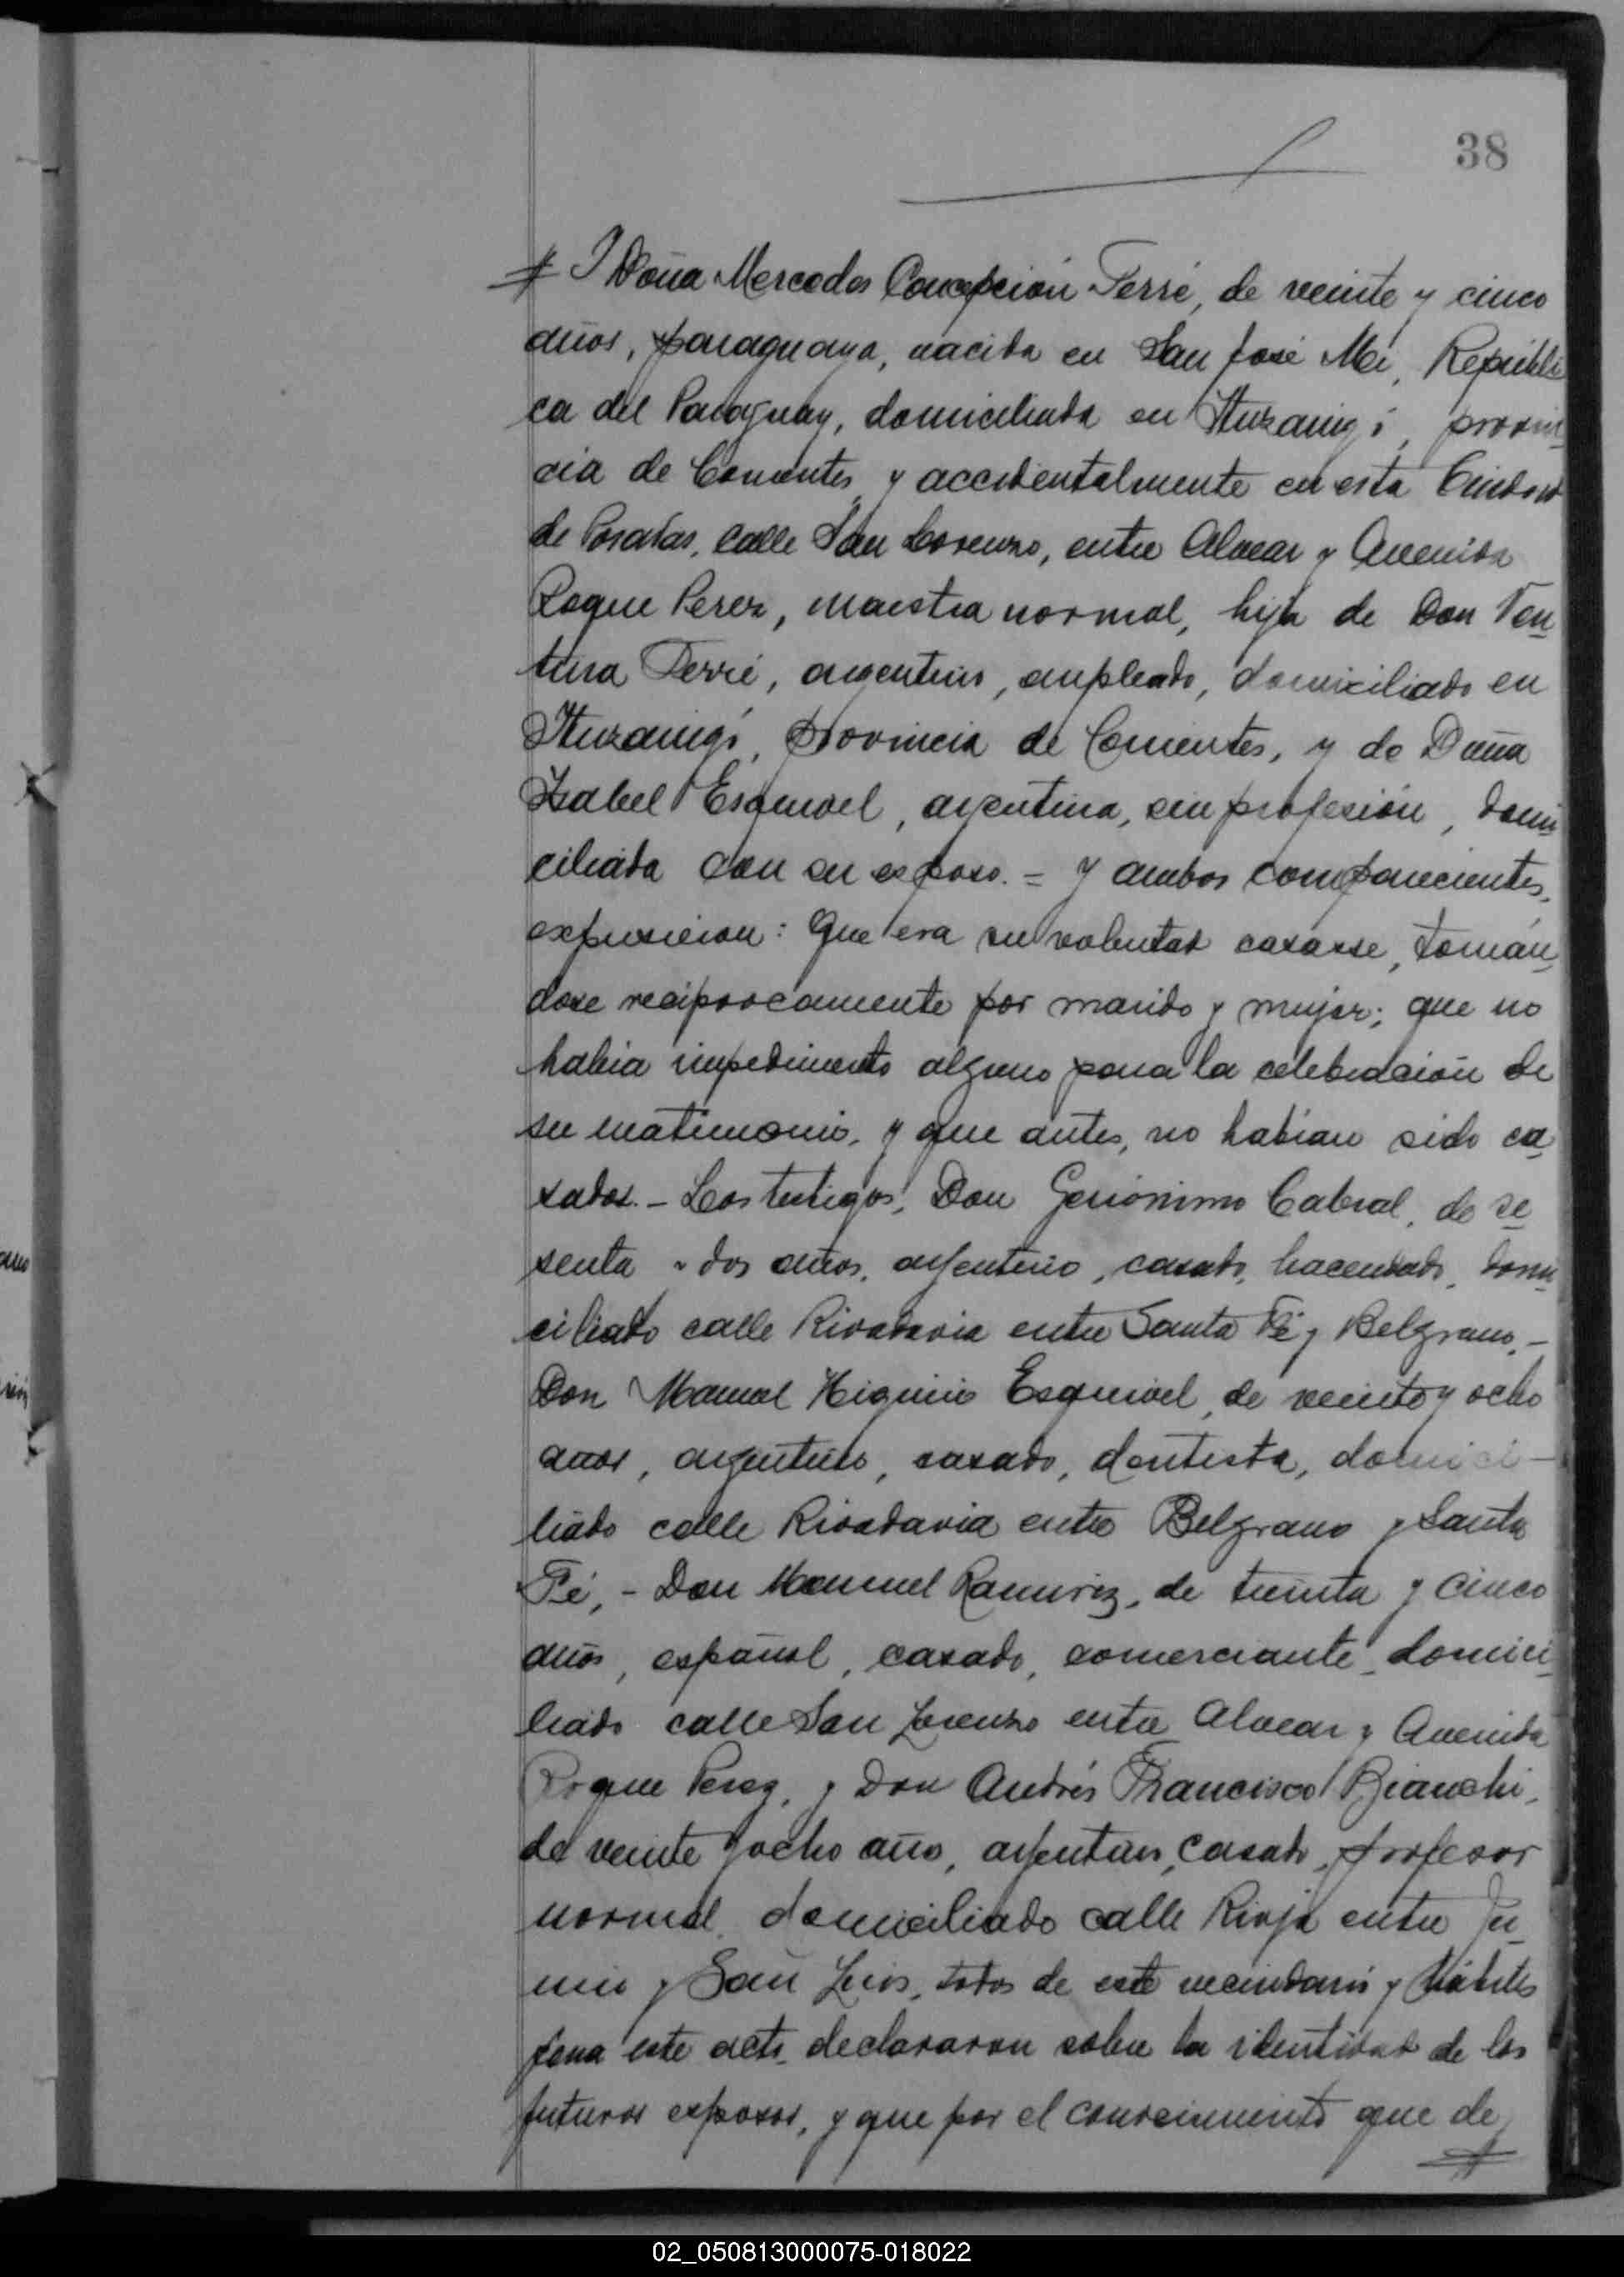 38
Y Doña Mercedes Concepción Ferré, de veinte y cinco
años, paraguaya, nacida en San José Mí, Repúbli
ca del Paraguay, domiciliada en Ituzaingó, provin
cia de Corrientes y accidentalmente en esta Ciudad
de Posadas, calle San Lorenzo, entre Alvear y Avenida
Roque Perez, maestra normal, hija de Don Ven
tura Ferré, argentino, empleado, domiciliado en
Ituzaingó, provincia de Corrientes, y de Doña
Isabel Esquivel, argentina, sin profesión, domi
ciliada con su esposo. = Y ambos comparecientes,
expusieron: Que era su voluntad casarse, tomán
dose reciprocamente por marido y mujer; que no
habia impedimento alguno para la celebración de
su matrimonio, y que antes, no habian sido ca
sados. - Los testigos, Don Gerónimo Cabral, de se
senta y dos años, argentino, casado, hacendado, domi
ciliado calle Rivadavia entre Santa Fé y Belgrano, -
Don Manuel Higinio Esquivel, de veinte y ocho
años, argentino, casado, dentista, domici-
liado calle Rivadavia entre Belgrano y Santa
Fé, - Don Manuel Ramirez, de treinta y cinco
años, español, casado, comerciante, domici
liado calle San Lorenzo entre Alvear y Avenida
Roque Perez, y Don Andrés Francisco Bianchi,
de veinte y ocho años, argentino, casado, profesor
normal, domiciliado calle Rioja entre Ju
nin y San Luis, todos de este vecindario y hábiles
para este acto, declararon sobre la identidad de los
futuros esposos, y que por el conocimiento que de
02_050813000075-018022